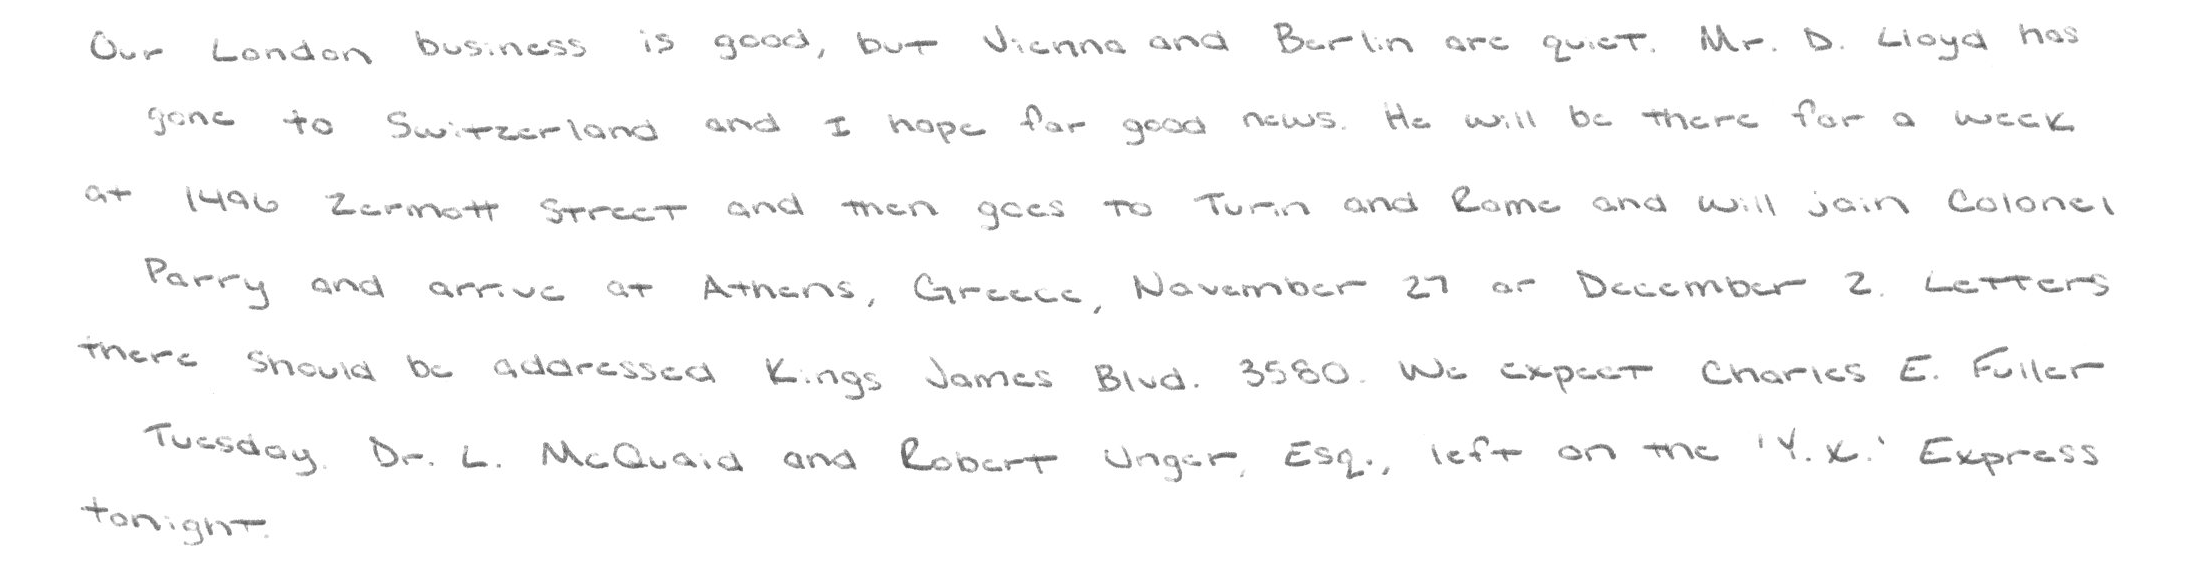 Our London business is good, but Vienna and Berlin are quiet. Mr. D. Lloyd has
gone to Switzerland and I hope for good news. He will be there for a week
at 1496 Zermott Street and then goes to Turin and Rome and will join Colonel
Parry and arrive at Athens, Greece, November 27 or December 2. Letters
there should be addressed Kings James Blvd. 3580. We expect Charles E. Fuller
Tuesday. Dr. L. McQuaid and Robert Unger, Esq., left on the 'Y.X.' Express
tonight.